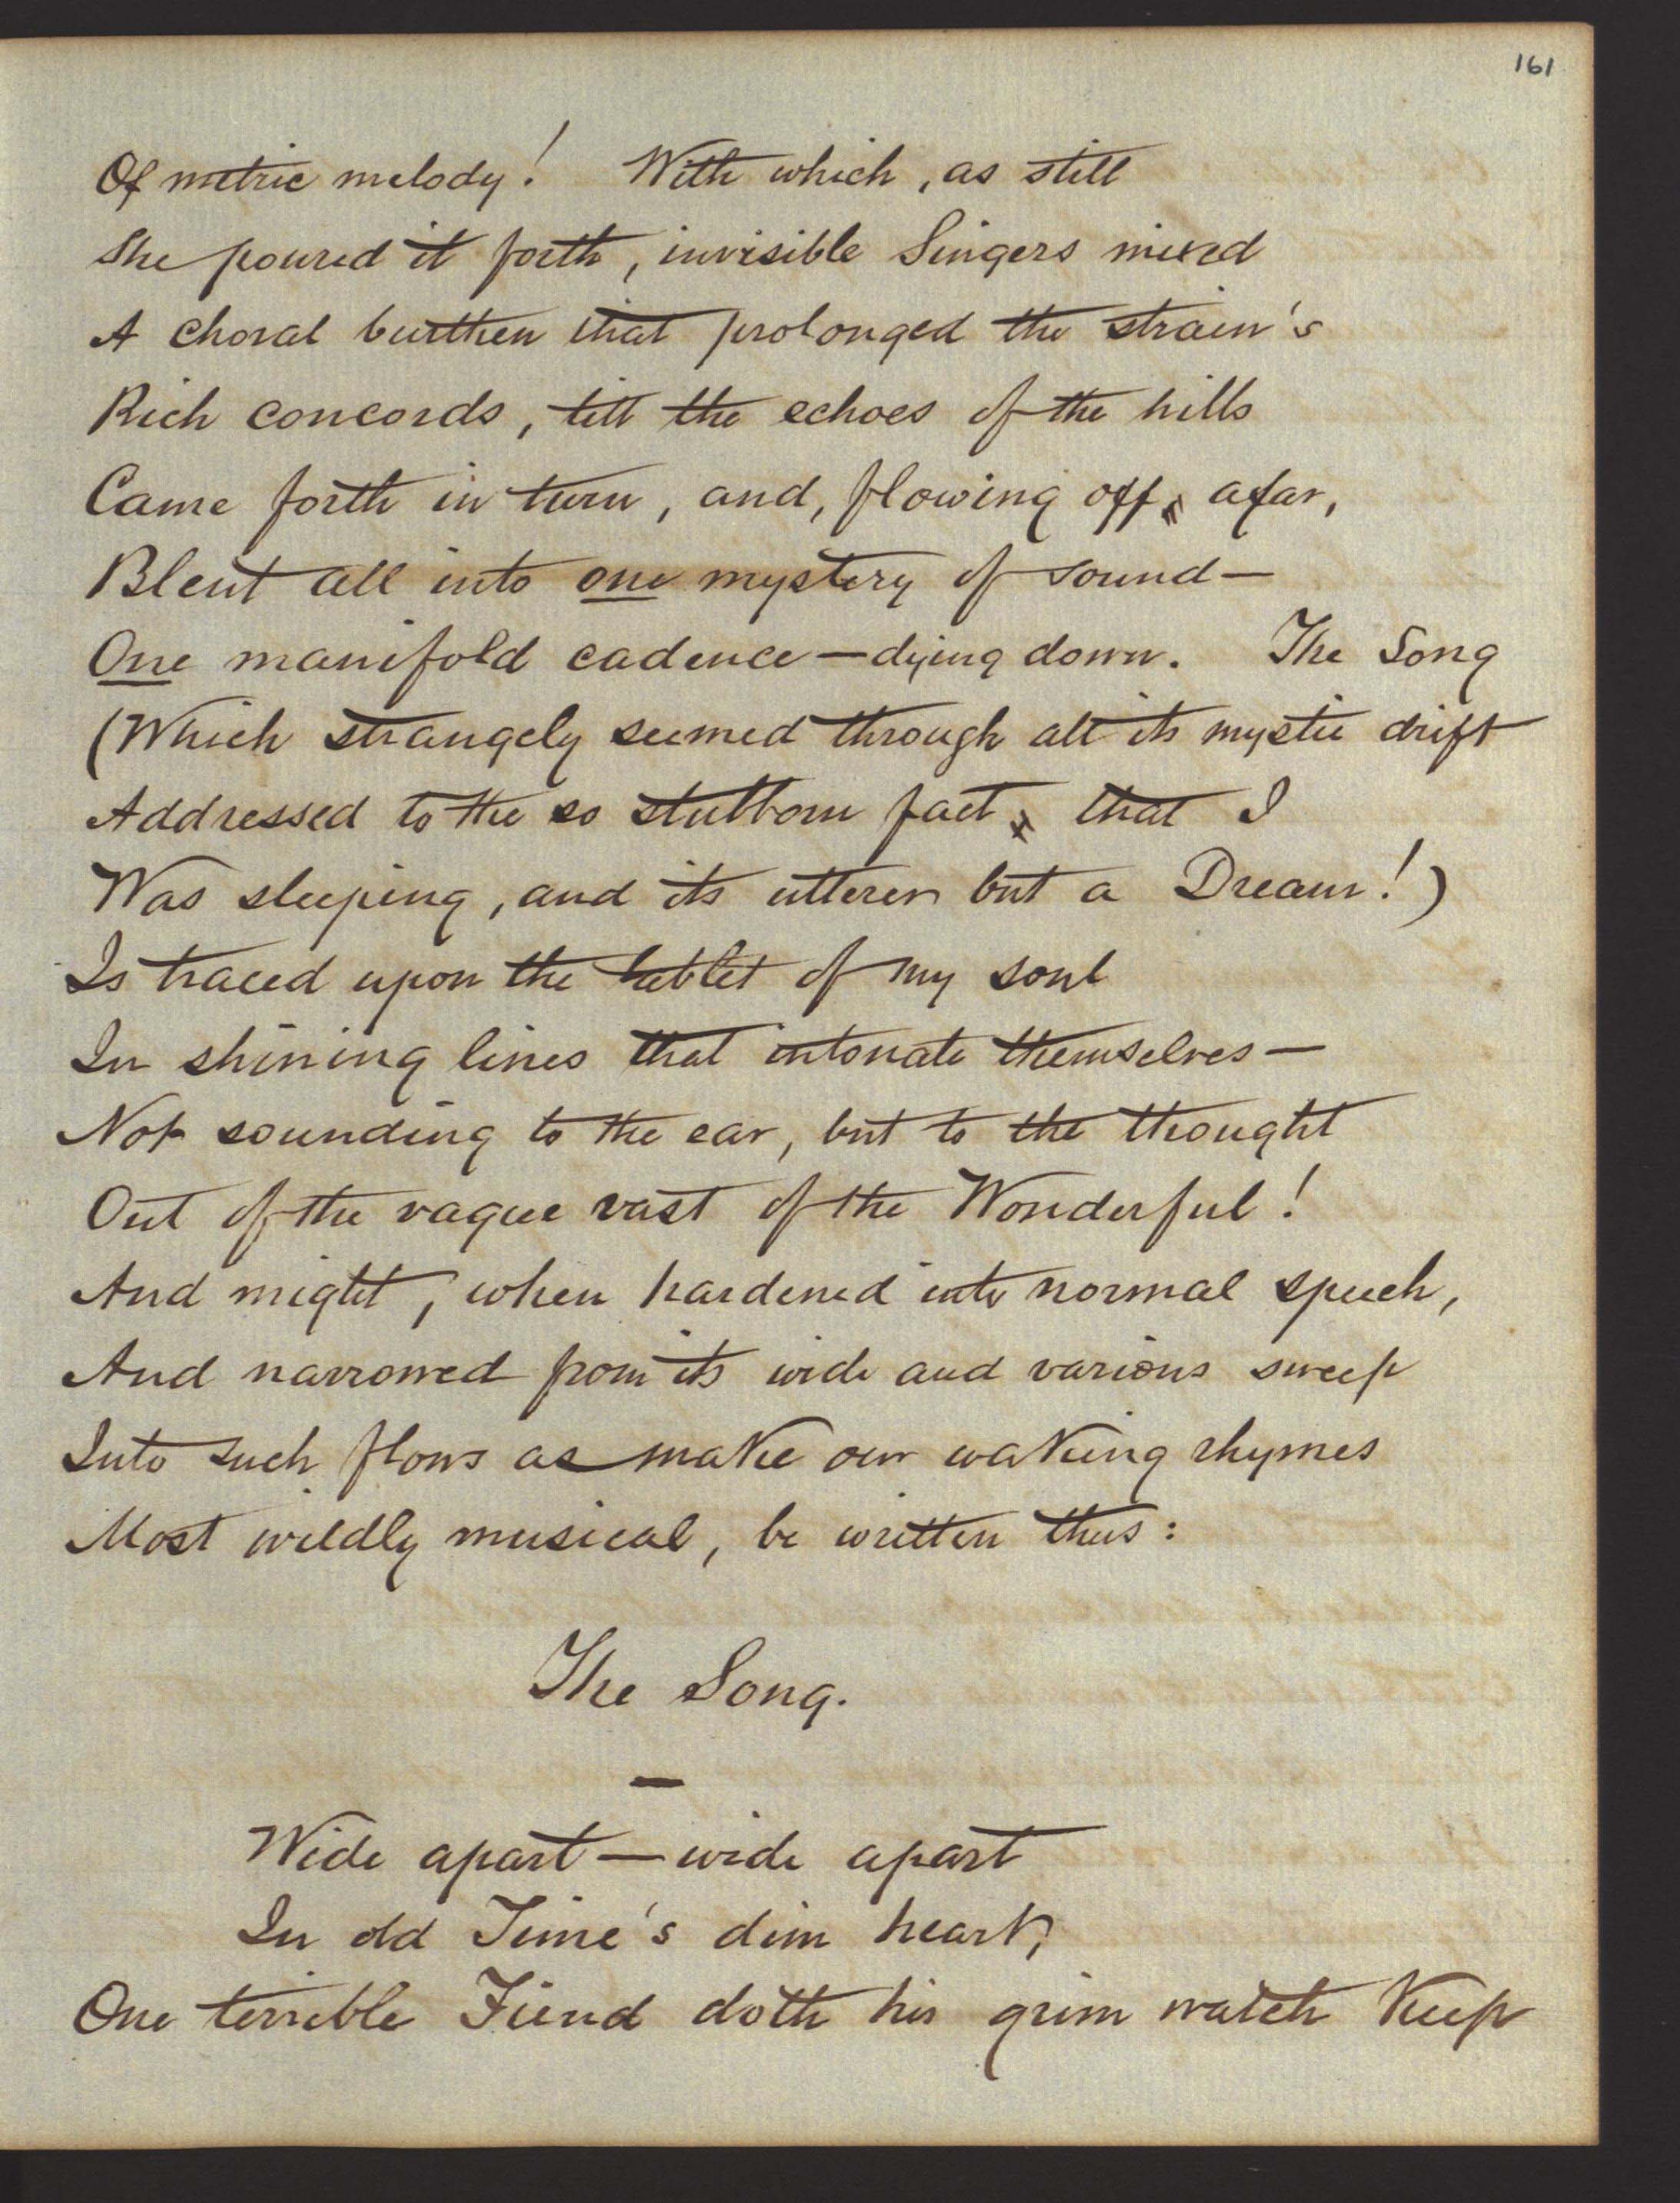 161
Of metric melody! With which, as still
She poured it forth, invisible Singers mixed
A choral burthen that prolonged the strain's
Rich concords, till the echoes of the hills
Came forth in turn, and, flowing off, afar,
Blent all into one mystery of sound—
One manifold cadence—dying down. The Song
(Which strangely seemed through all its mystic drift
Addressed to the so stubborn fact, that I
Was sleeping, and its utterer but a Dream!)
Is traced upon the tablet of my soul
In shining lines that intonate themselves—
Not sounding to the ear, but to the thought
Out of the vague vast of the Wonderful!
And might, when hardened into normal speech,
And narrowed from its wide and various sweep
Into such flows as make our waking rhymes
Most wildly musical, be written thus:
The Song.
—
Wide apart—wide apart
In old Time's dim heart,
One terrible Fiend doth his grim watch keep